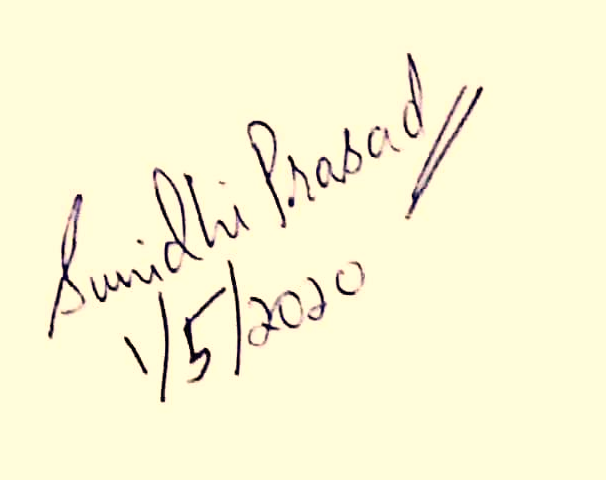 Sunidhi Prasad
1/5/2020